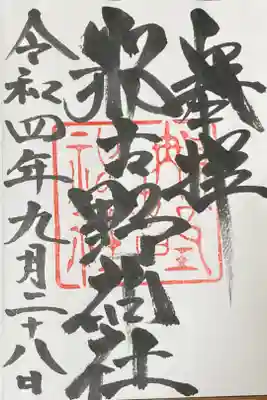 奉拝
那古野神社
令和四年九月二十八日